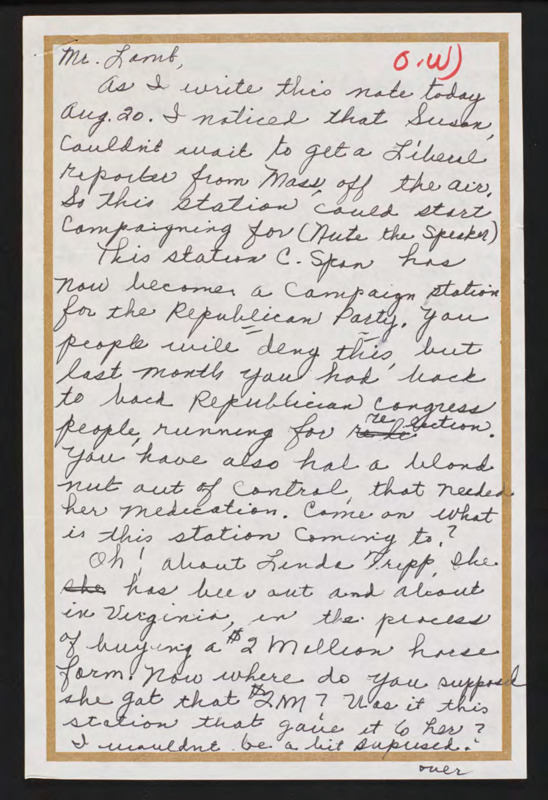 Mr. Lamb,
O.W)
As I write this note today
Aug. 20. I noticed that Susan,
Couldn't wait to get a Liberal
reporter from Mass, off the air,
So this station could start
Campaigning for (Nute the Speeker)
This station C. Span has
now become a Campaign station
for the Republican Party. You
people will deny this, but
last month you had back
to back Republician Congress
people, running for re election.
You have also had a blond
nut out of control, that needed
her medication. Come on what
is this station coming to?
Oh! about Linda Tripp, She
she has been out and about
in Virginia, in the process
of buying a $2 Million horse
farm. Now where do you supposed
she got that $2M? Was it this
station that gave it to her?
I wouldnt be a bit supused.
over